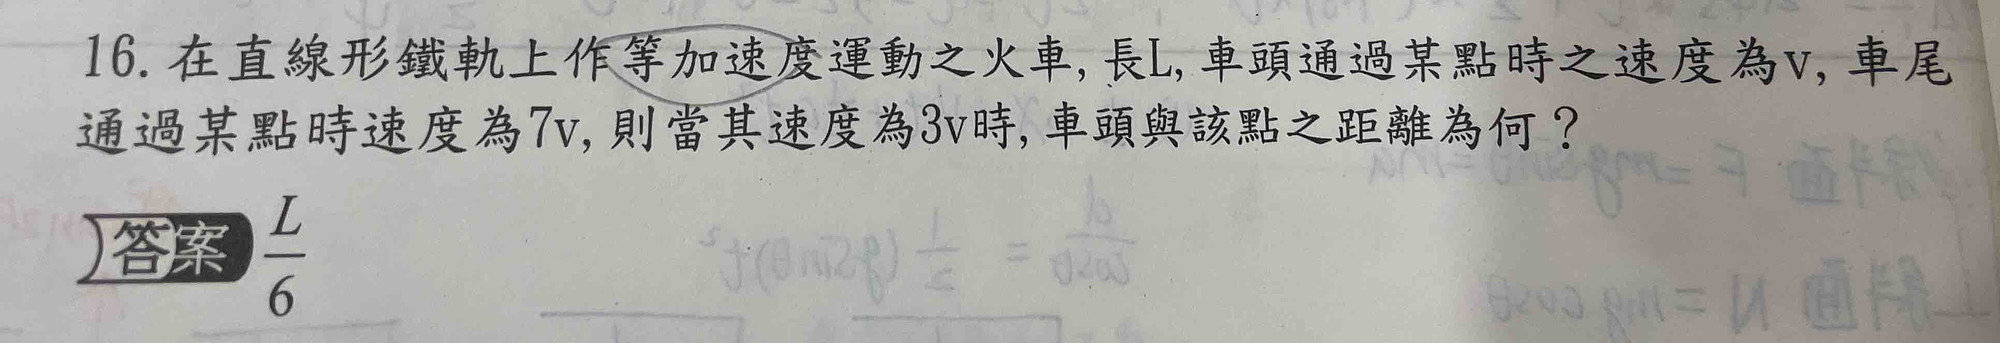 16. 在直線形鐵軌上作等加速度運動之火車, 長L, 車頭通過某點時之速度為v, 車尾
通過某點時速度為7v, 則當其速度為3v時, 車頭與該點之距離為何?
答案 L/6